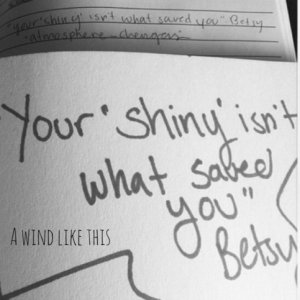 "your 'shiny' isn't what saved you" Betsy
"atmosphere changers"
Your 'Shiny' isn't
what saved
you"
Betsy
A WIND LIKE THIS